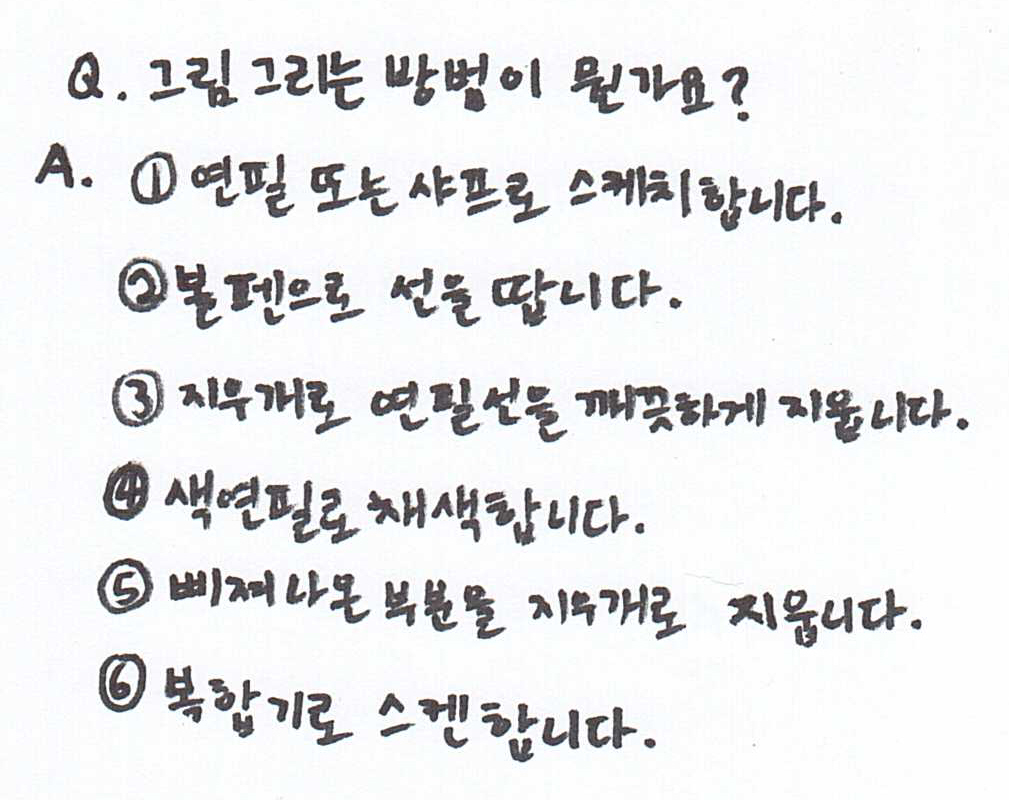 Q. 그림 그리는 방법이 뭔가요?
A. ① 연필 또는 샤프로 스케치합니다.
② 볼펜으로 선을 땁니다.
③ 지우개로 연필선을 깨끗하게 지웁니다.
④ 색연필로 채색합니다.
⑤ 삐져나온 부분을 지우개로 지웁니다.
⑥ 복합기로 스켄합니다.